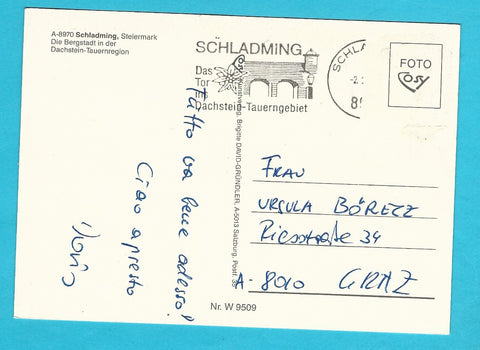 A-8970 Schladming, Steiermark
Die Bergstadt in der
Dachstein-Tauernregion
SCHLADMING
Das
Tor
ins
Dachstein-Tauerngebiet
SCHLA
-2.
89
FOTO
Cosy
Tutto va bene adesso!
Ciao a presto
Doris
Brigitte DAVID-GRÜNDLER, A-5013 Salzburg, Postf. 35
FRAU
URSULA BÖRECZ
Riesstraße 34
A-8010 GRAZ
Nr. W 9509